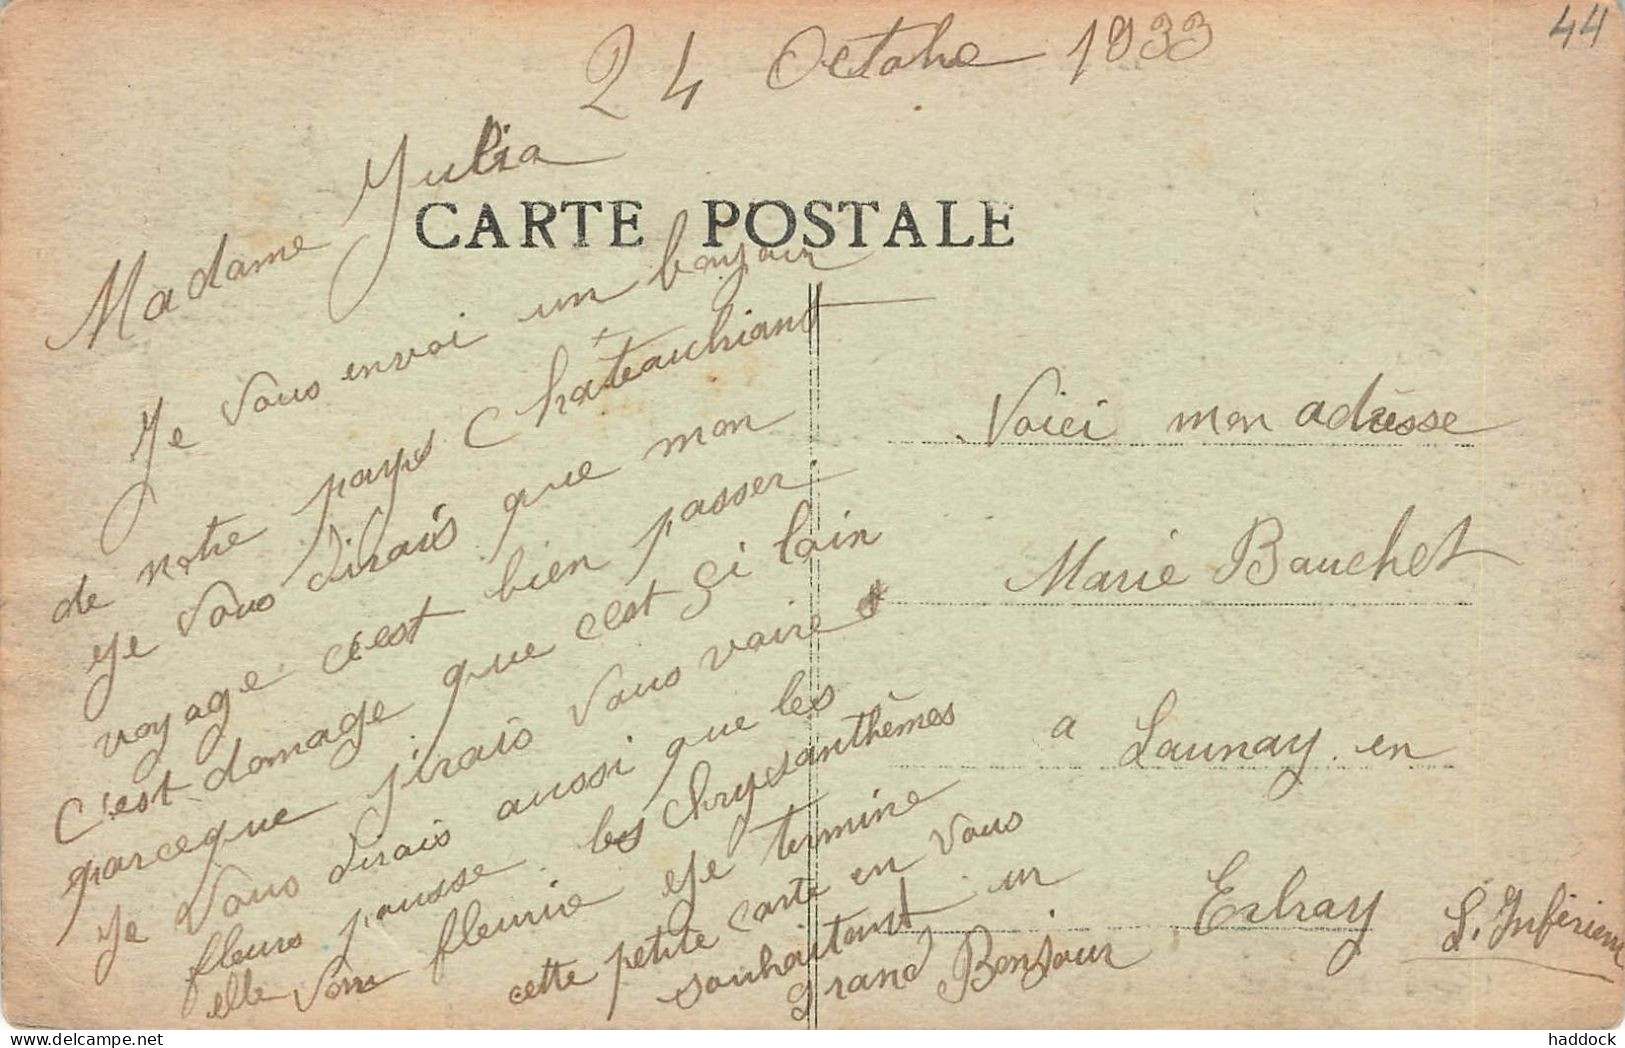 44
24 Octobre 1933
Madame Julia
CARTE POSTALE
Je vous envoi un bonjour
de notre pays Châteaubriant
Je vous dirais que mon
voyage c'est bien passer
C'est domage que c'est si loin
parceque j'irais vous voire
Je vous dirais aussi que les
fleurs pousse les chrysanthèmes
elle vont fleurie Je termine
cette petite carte en vous
souhaitant un
grand Bonjour
Voici mon adresse
Marie Bauchet
a Launay en
Erbray L. Inférieure
delcampe.net
haddock